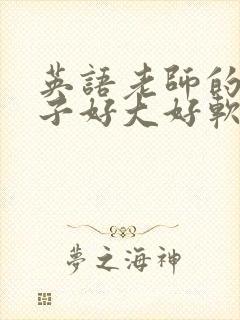 英語老師的
子好大好軟
夢之海神